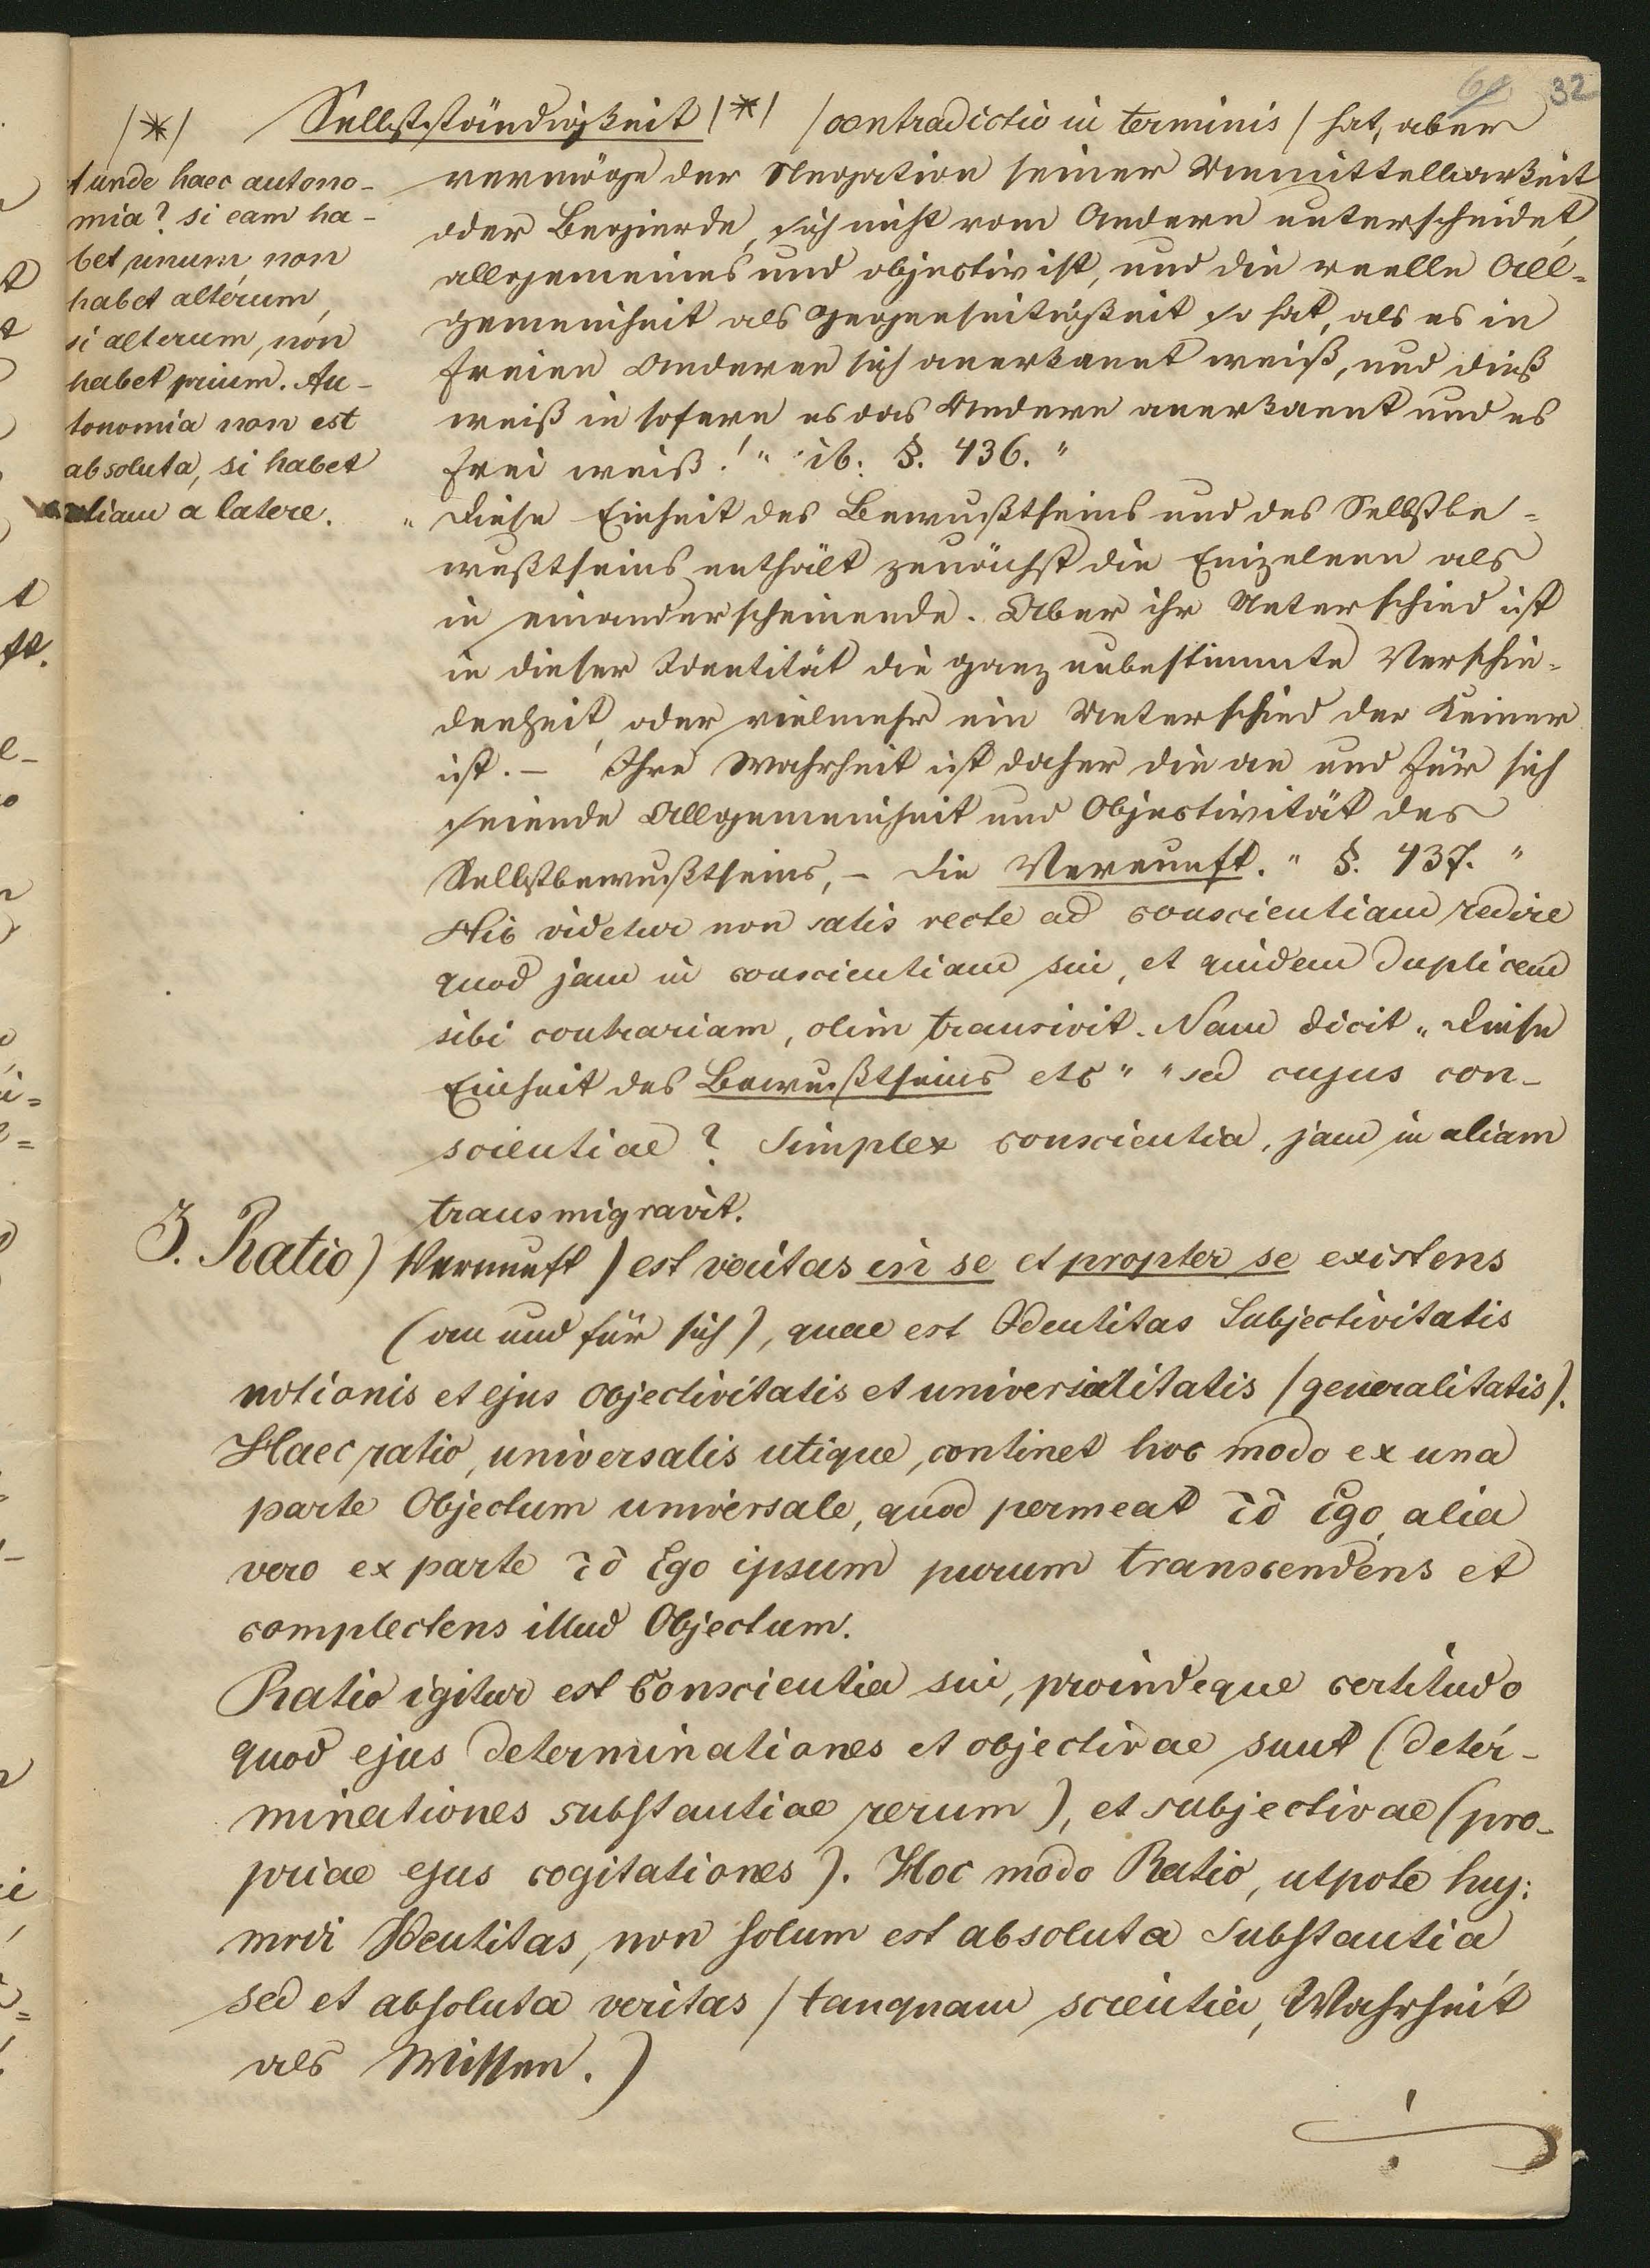 32
Selbstständigkeit /*/ /contradictio in terminis/ hat, aber
vermöge der Negation seiner Unmittelbarkeit
oder Begierde, sich nicht vom Andern unterscheidet,
allgemeines und objectiv ist, und die reelle All-
gemeinheit als Gegenseitigkeit so hat, als es in
freien Anderen sich anerkannt weiß, und dieß
weiß in sofern es das Andere anerkannt und es
frei weiß!" ib. §. 436."
/*/
et unde haec autono-
mia? si eam ha-
bet unum, non
habet alterum,
si alterum, non
habet prium. Au-
tonomia non est
absoluta, si habet
aliam a latere.
"Diese Einheit des Bewußtseins und des Selbstbe-
wußtseins enthält zunächst die Einzelnen als
in einanderscheinende. Aber ihr Unterschied ist
in dieser Identität die ganz unbestimmte Verschie-
denheit, oder vielmehr ein Unterschied der Keiner
ist. – Ihre Wahrheit ist daher die an und für sich
seiende Allgemeinheit und Objectivität des
Selbstbewußtseins, – die Vernunft." §. 437."
Hic videtur non satis recte ad conscientiam redire
quod jam in conscientiam sui, et quidem duplicem
sibi contrariam, olim transivit. Nam dicit "Diese
Einheit des Bewußtseins etc" "sed cujus con-
scientiae? Simplex conscientia, jam in aliam
transmigravit.
3. Ratio) Vernunft) est veritas in se et propter se existens
(an und für sich), quae est Identitas Subjectivitatis
notionis et ejus Objectivitatis et universalitatis /generalitatis).
Haec ratio, universalis utique, continet hoc modo ex una
parte Objectum universale, quod permeat τὸ Ego, alia
vero ex parte τὸ Ego ipsum purum transcendens et
complectens illud Objectum.
Ratio igitur est Conscientia sui, proindeque certitudo
quod ejus determinationes et objectivae sunt (deter-
minationes substantiae rerum), et subjectivae (pro-
priae ejus cogitationes). Hoc modo Ratio, utpote huj:
modi Identitas, non solum est absoluta Substantia
sed et absoluta veritas /tanquam scientia, Wahrheit
als Wissen.)